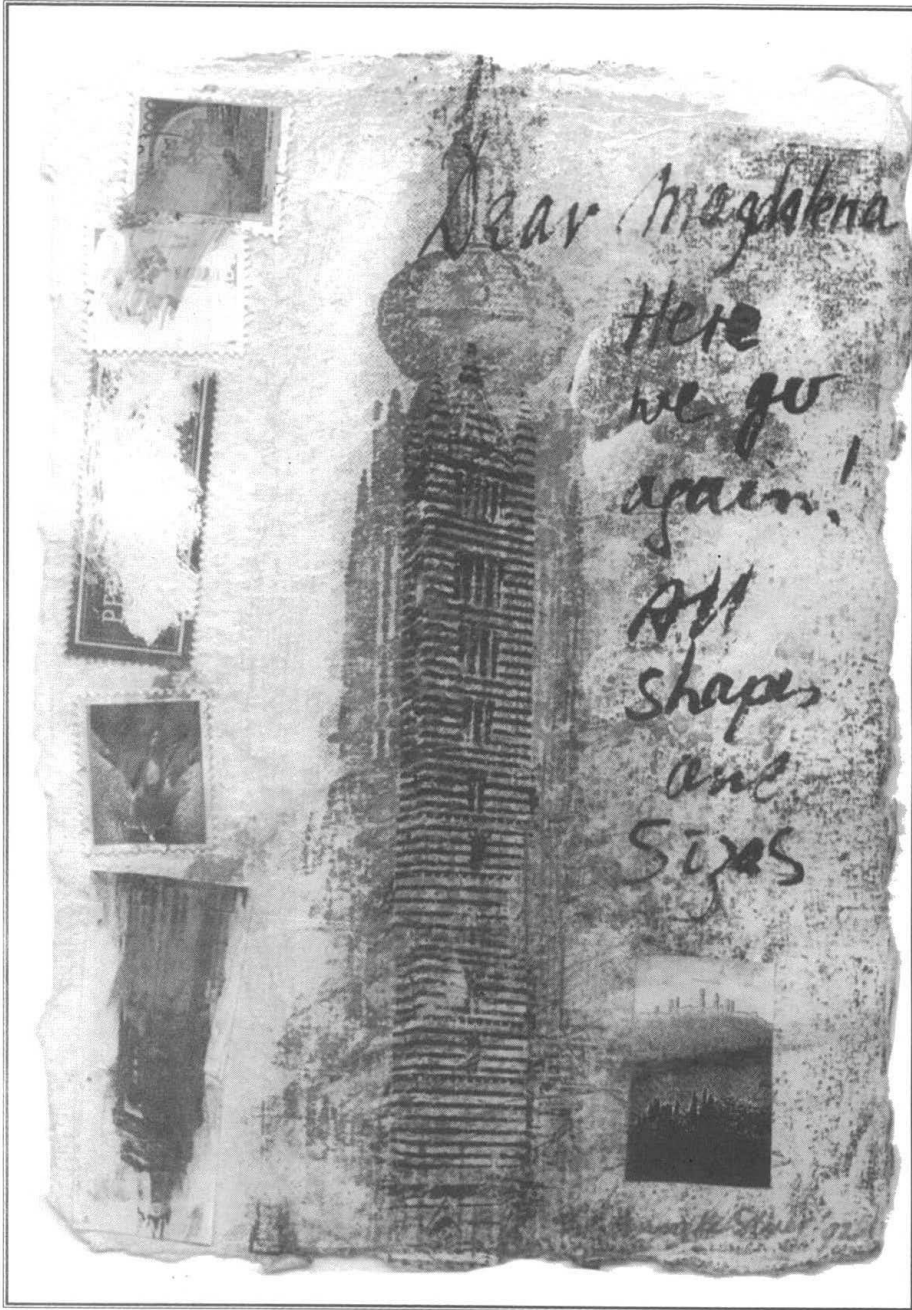 Dear Magdalena
Here
we go
again!
All
shapes
and
Sizes